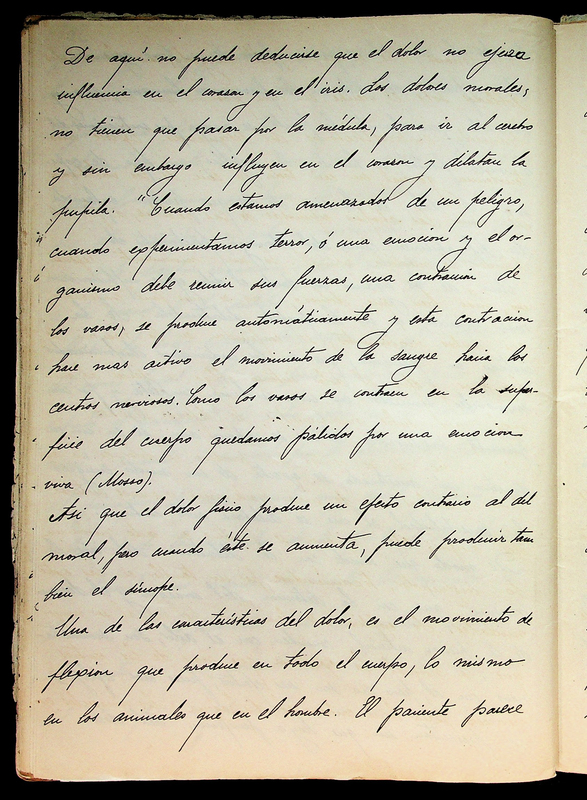 De aquí no puede deducirse que el dolor no ejerza
influencia en el corazon y en el iris. Los dolores morales,
no tienen que pasar por la médula, para ir al cerebro
y sin embargo influyen en el corazon y dilatan la
pupila. "Cuando estamos amenazados de un peligro,
cuando experimentamos terror, ó una emocion y el or-
ganismo debe reunir sus fuerzas, una contracion de
los vasos, se produce automáticamente y esta contracion
hace mas activo el movimiento de la sangre hacia los
centros nerviosos. Como los vasos se contraen en la super-
ficie del cuerpo quedamos pálidos por una emocion
viva (Mosso).
Asi que el dolor fisico produce un efecto contrario al del
moral, pero cuando éste se aumenta, puede producir tam
bien el síncope.
Una de las características del dolor, es el movimiento de
flexion que produce en todo el cuerpo, lo mismo
en los animales que en el hombre. El paciente parece